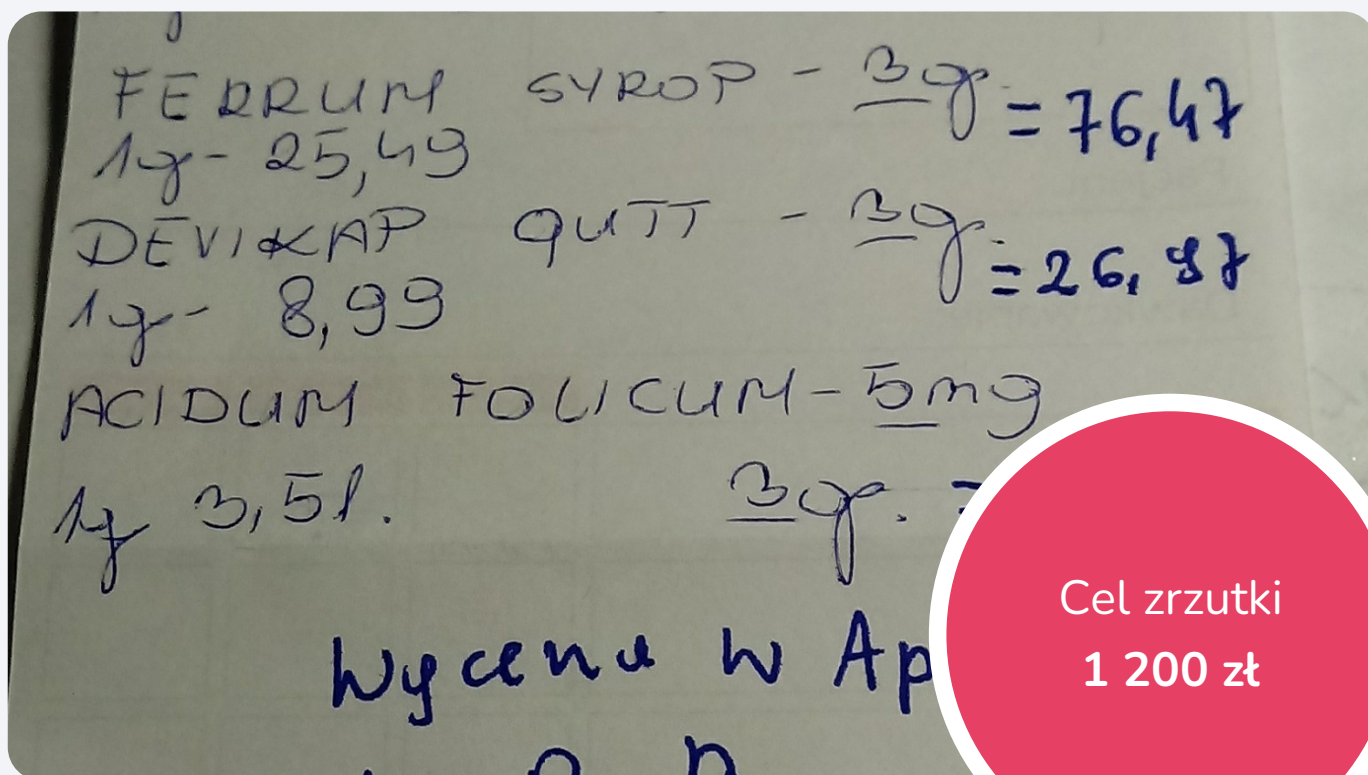 FERRUM SYROP - 3g = 76,47
1g - 25,49
DEVIKAP GUTT - 3g. = 26,97
1g - 8,99
ACIDUM FOLICUM - 5mg
1g 3,51. 3g. =
Wycena w Ap
Cel zrzutki
1 200 zł